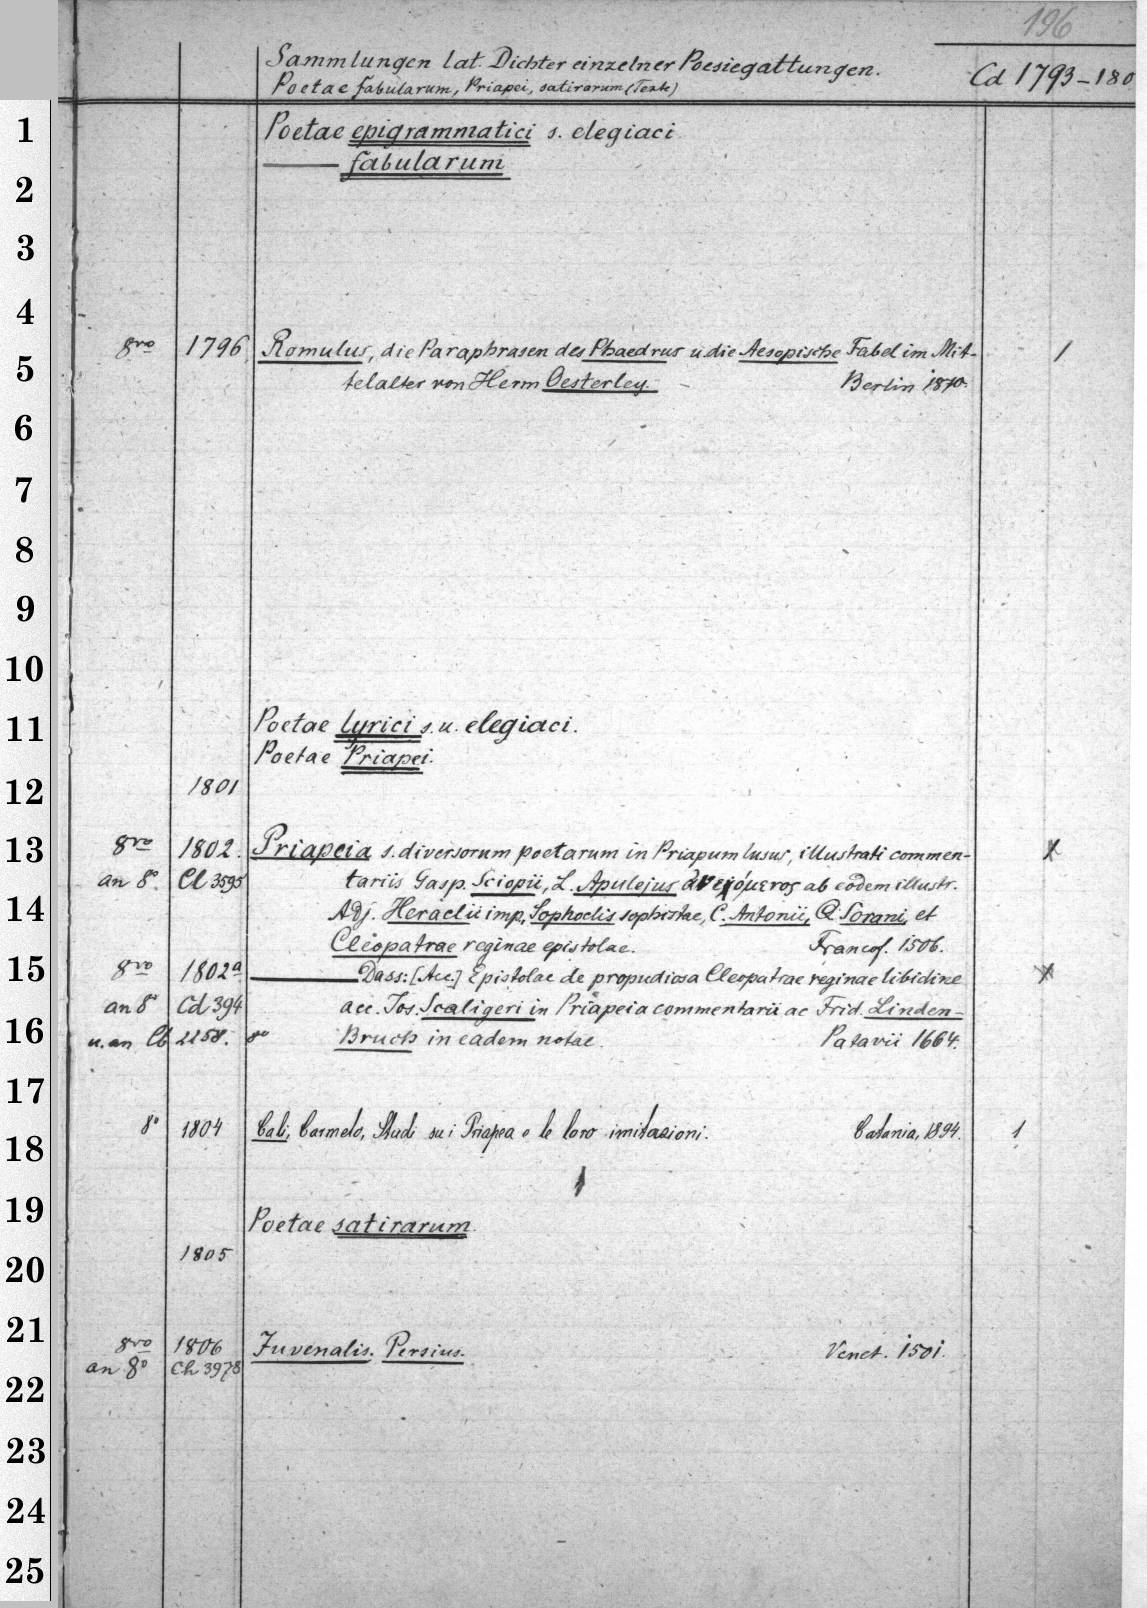 196
Sammlungen lat. Dichter einzelner Poesiegattungen.
Poetae fabularum, Priapei, satirarum (Texte)
Cd 1793-180
1 Poetae epigrammatici s. elegiaci
——— fabularum
2
3
4
8vo 1796 Romulus, die Paraphrasen des Phaedrus u die Aesopische Fabel im Mit- 1
5 telalter von Herm Oesterley. – Berlin 1870.
6
7
8
9
10
11 Poetae lyrici s. u. elegiaci.
Poetae Priapei.
12 1801
13 8vo 1802. Priapeia s. diversorum poetarum in Priapum lusus, illustrati commen- x
an 8° Cl 3595 tariis Gasp. Sciopii, L. Apulejus ab eodem illustr.
14 Adj. Heraclii imp, Sophoclis sophistae, C. Antonii, Q. Sorani, et
Cleopatrae reginae epistolae. Francof. 1506.
15 8vo 1802a ——— Dass: [Acc.] Epistolae de propudiosa Cleopatrae reginae libidine x
an 8° Cd 394 acc. Jos. Scaligeri in Priapeia commentarii ac Frid. Linden-
16 u. an Cb 2258. 8° Bruch in eadem notae. Patavii 1664.
17
8° 1804 Cali, Carmelo, Studi su i Priapea e le loro imitazioni. Catania, 1894. 1
18
19 Poetae satirarum.
1805
20
21 8vo 1806 Juvenalis. Persius. Venet. 1501.
an 8° Ch 3978
22
23
24
25